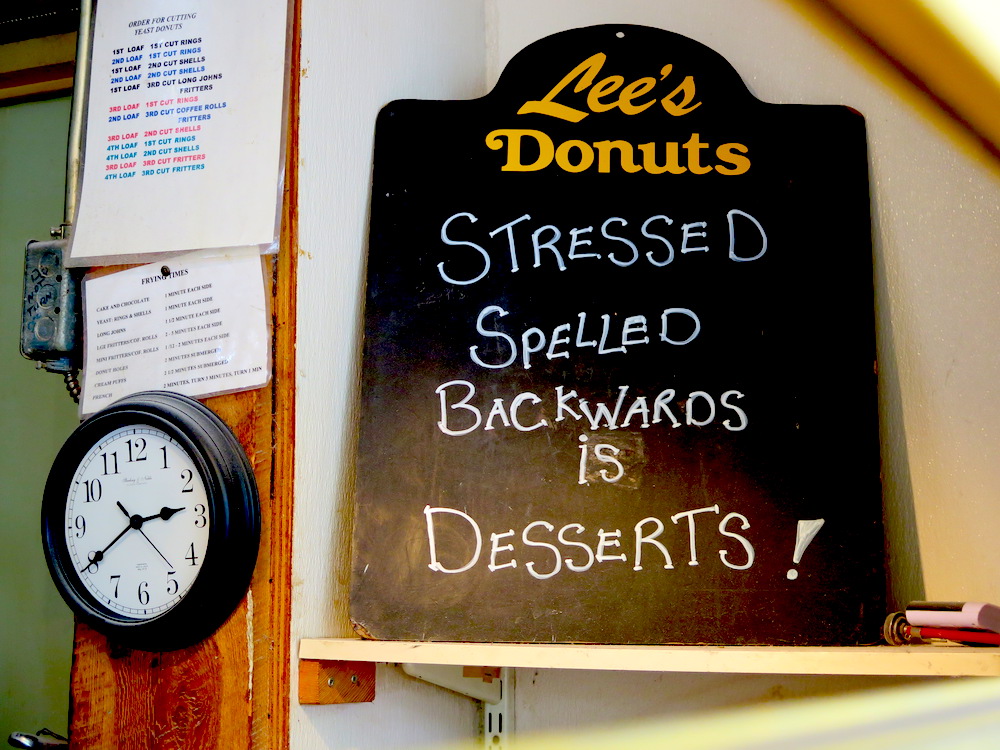 ORDER FOR CUTTING
YEAST DONUTS
1ST LOAF 1ST CUT RINGS
2ND LOAF 1ST CUT RINGS
1ST LOAF 2ND CUT SHELLS
2ND LOAF 2ND CUT SHELLS
1ST LOAF 3RD CUT LONG JOHNS
FRITTERS
3RD LOAF 1ST CUT RINGS
2ND LOAF 3RD CUT COFFEE ROLLS
FRITTERS
3RD LOAF 2ND CUT SHELLS
4TH LOAF 1ST CUT RINGS
4TH LOAF 2ND CUT SHELLS
3RD LOAF 3RD CUT FRITTERS
4TH LOAF 3RD CUT FRITTERS
FRYING TIMES
CAKE AND CHOCOLATE 1 MINUTE EACH SIDE
YEAST: RINGS & SHELLS 1 MINUTE EACH SIDE
LONG JOHNS 1 1/2 MINUTE EACH SIDE
LGE FRITTERS/COF. ROLLS 2 - 3 MINUTES EACH SIDE
MINI FRITTERS/COF. ROLLS 1 -1/2 - 2 MINUTES EACH SIDE
DONUT HOLES 2 MINUTES SUBMERGED
CREAM PUFFS 2 1/2 MINUTES SUBMERGED
FRENCH 2 MINUTES, TURN 3 MINUTES, TURN 1 MIN
12
1
2
3
4
5
6
7
8
9
10
11
Lee's
Donuts
STRESSED
SPELLED
BACKWARDS
iS
DESSERTS !